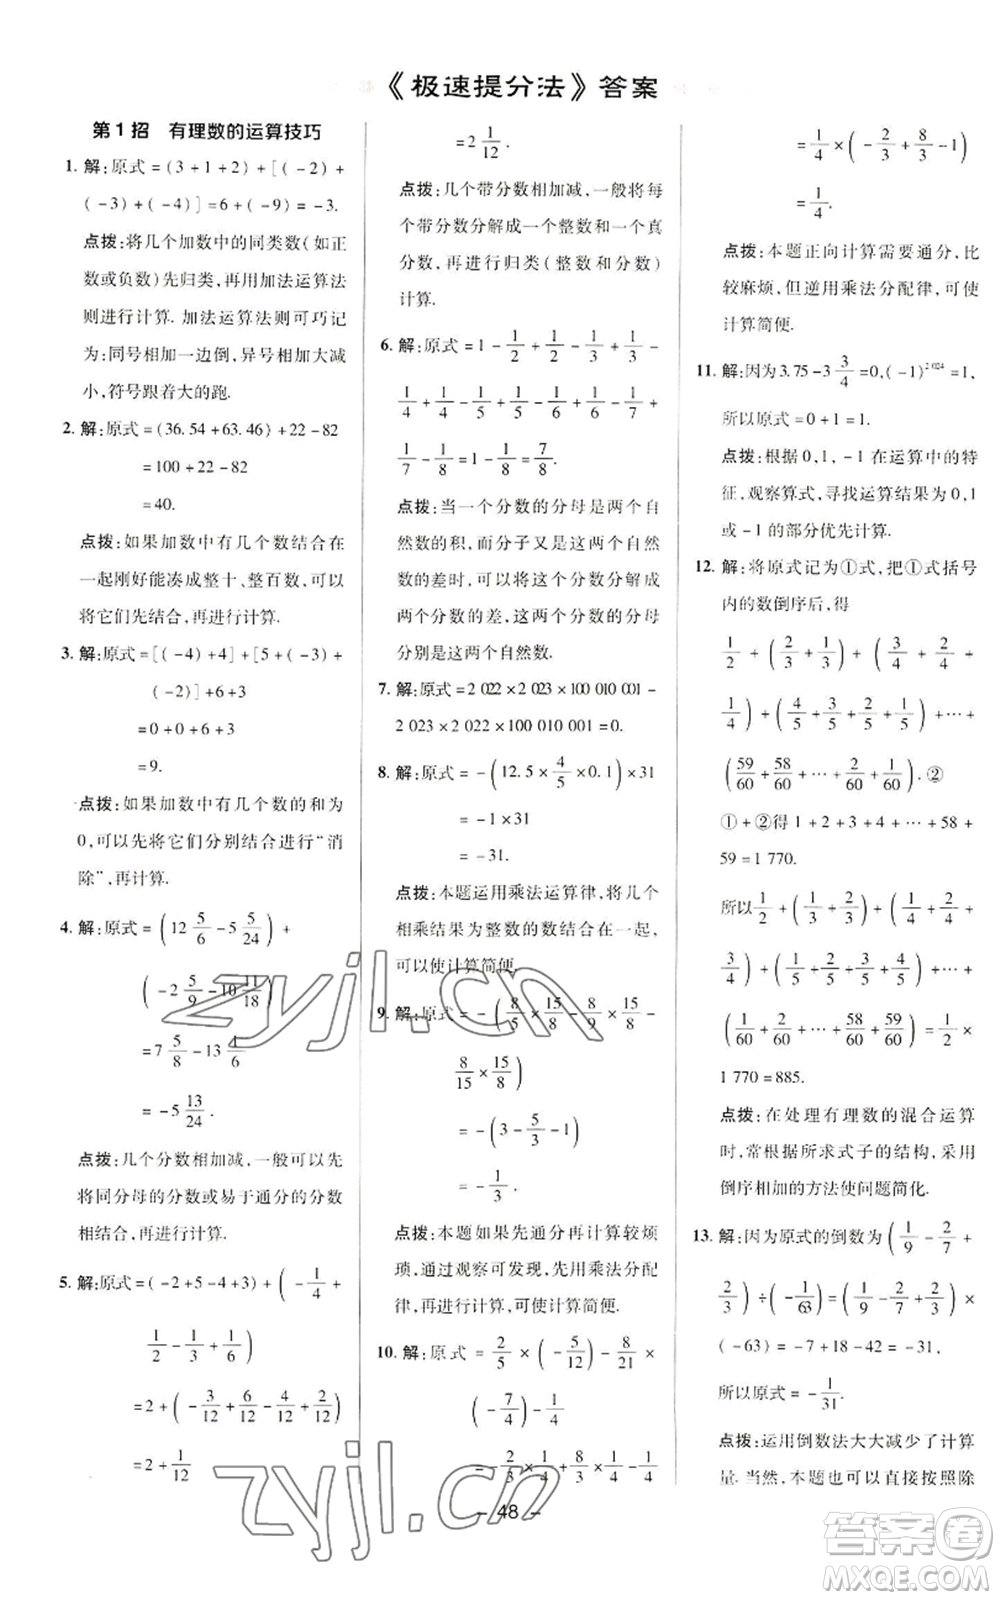 《极速提分法》答案
第1招 有理数的运算技巧
1. 解:原式=(3+1+2)+[(-2)+
(-3)+(-4)]=6+(-9)=-3.
点拨:将几个加数中的同类数(如正
数或负数)先归类,再用加法运算法
则进行计算.加法运算法则可巧记
为:同号相加一边倒,异号相加大减
小,符号跟着大的跑.
2. 解:原式=(36.54+63.46)+22-82
=100+22-82
=40.
点拨:如果加数中有几个数结合在
一起刚好能凑成整十、整百数,可以
将它们先结合,再进行计算.
3. 解:原式=[(-4)+4]+[5+(-3)+
(-2)]+6+3
=0+0+6+3
=9.
点拨:如果加数中有几个数的和为
0,可以先将它们分别结合进行“消
除”,再计算.
4. 解:原式=(12 5/6-5 5/24)+
(-2 5/9-10 11/18)
=7 5/8-13 4/6
=-5 13/24.
点拨:几个分数相加减,一般可以先
将同分母的分数或易于通分的分数
相结合,再进行计算.
5. 解:原式=(-2+5-4+3)+(-1/4+
1/2-1/3+1/6)
=2+(-3/12+6/12-4/12+2/12)
=2+1/12
=2 1/12.
点拨:几个带分数相加减,一般将每
个带分数分解成一个整数和一个真
分数,再进行归类(整数和分数)
计算.
6. 解:原式=1-1/2+1/2-1/3+1/3-
1/4+1/4-1/5+1/5-1/6+1/6-1/7+
1/7-1/8=1-1/8=7/8.
点拨:当一个分数的分母是两个自
然数的积,而分子又是这两个自然
数的差时,可以将这个分数分解成
两个分数的差,这两个分数的分母
分别是这两个自然数.
7. 解:原式=2 022×2 023×100 010 001-
2 023×2 022×100 010 001=0.
8. 解:原式=-(12.5×4/5×0.1)×31
=-1×31
=-31.
点拨:本题运用乘法运算律,将几个
相乘结果为整数的数结合在一起,
可以使计算简便.
9. 解:原式=-(8/5×15/8-8/9×15/8-
8/15×15/8)
=-(3-5/3-1)
=-1/3.
点拨:本题如果先通分再计算较烦
琐,通过观察可发现,先用乘法分配
律,再进行计算,可使计算简便.
10. 解:原式=2/5×(-5/12)-8/21×
(-7/4)-1/4
=-2/3×1/4+8/3×1/4-1/4
=1/4×(-2/3+8/3-1)
=1/4.
点拨:本题正向计算需要通分,比
较麻烦,但逆用乘法分配律,可使
计算简便.
11. 解:因为3.75-3 3/4=0,(-1)²⁰²⁴=1,
所以原式=0+1=1.
点拨:根据0,1,-1在运算中的特
征,观察算式,寻找运算结果为0,1
或-1的部分优先计算.
12. 解:将原式记为①式,把①式括号
内的数倒序后,得
1/2+(2/3+1/3)+(3/4+2/4+
1/4)+(4/5+3/5+2/5+1/5)+…+
(59/60+58/60+…+2/60+1/60).②
①+②得1+2+3+4+…+58+
59=1 770.
所以1/2+(1/3+2/3)+(1/4+2/4+
3/4)+(1/5+2/5+3/5+4/5)+…+
(1/60+2/60+…+58/60+59/60)=1/2×
1 770=885.
点拨:在处理有理数的混合运算
时,常根据所求式子的结构,采用
倒序相加的方法使问题简化.
13. 解:因为原式的倒数为(1/9-2/7+
2/3)÷(-1/63)=(1/9-2/7+2/3)×
(-63)=-7+18-42=-31,
所以原式=-1/31.
点拨:运用倒数法大大减少了计算
量.当然,本题也可以直接按照除
- 48 -
zyjl.cn
zyjl.cn
答案圈
MXQE.COM